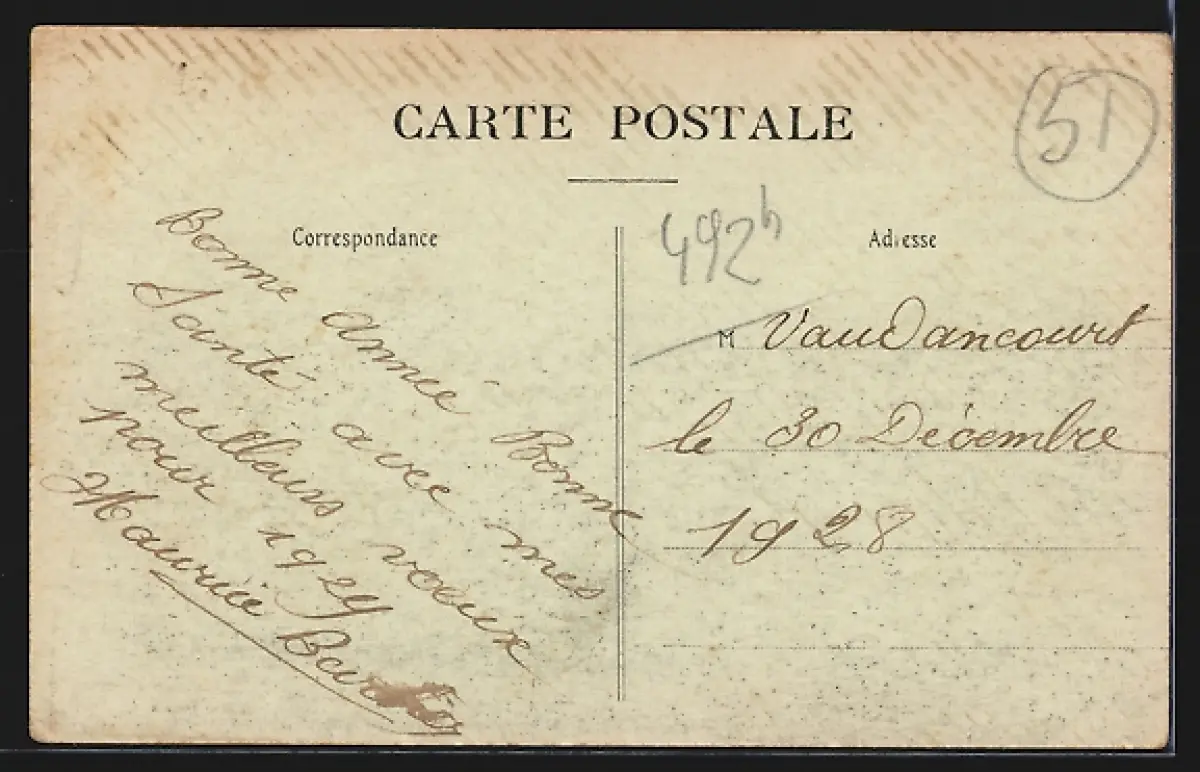 CARTE POSTALE
51
Correspondance
Adresse
492h
Bonne année Bonne
Santé avec mes
meilleurs voeux
pour 1929
Maurice
M Vaudancourt
le 30 Décembre
1928